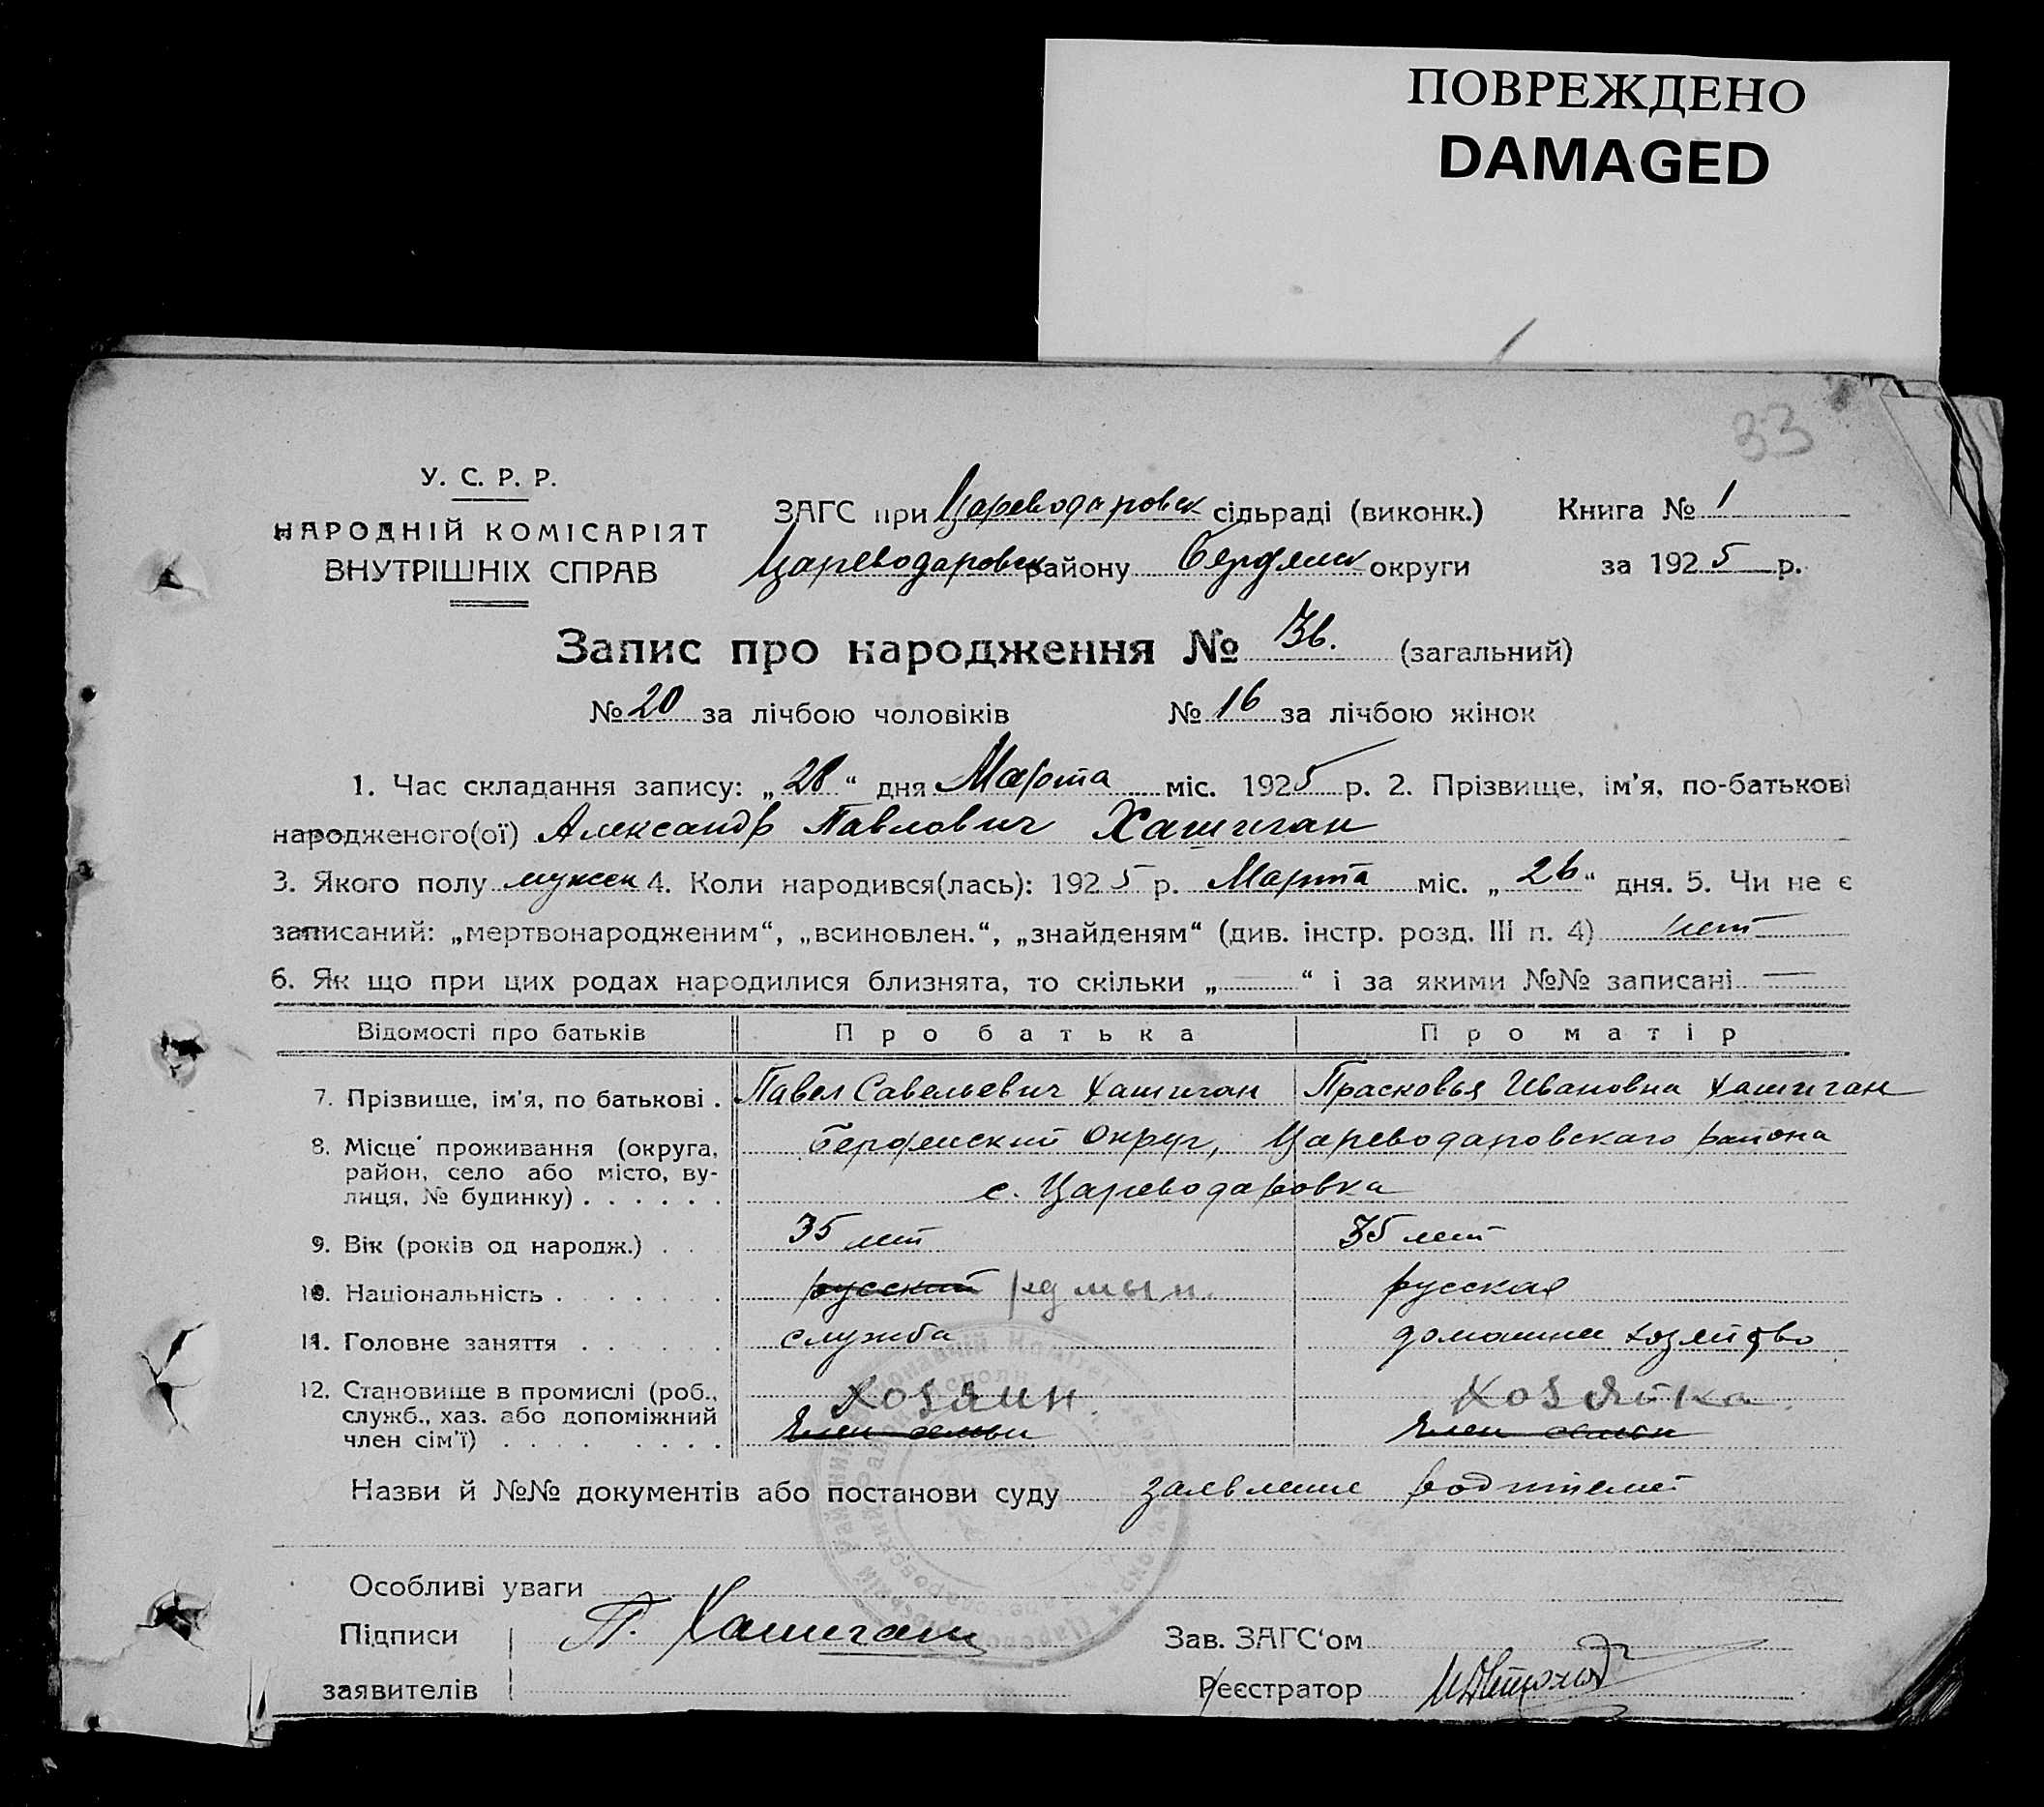 ПОВРЕЖДЕНО
DAMAGED
33
У. С. Р. Р.
НАРОДНІЙ КОМІСАРІЯТ
ВНУТРІШНІХ СПРАВ
ЗАГС при Цареводаровск сільраді (виконк.) Книга № 1
Цареводаровск району Бердянск округи за 1925 р.
Запис про народження № 36. (загальний)
№ 20 за лічбою чоловіків № 16 за лічбою жінок
1. Час складання запису: „28“ дня Марта міс. 1925 р. 2. Прізвище, ім'я, по-батькові
народженого(ої) Александр Павлович Хашиган
3. Якого полу мужск 4. Коли народився(лась): 1925 р. Марта міс. „26“ дня. 5. Чи не є
записаний: „мертвонародженим“, „всиновлен.“, „знайденям“ (див. інстр. розд. III п. 4) нет
6. Як що при цих родах народилися близнята, то скільки „—“ і за якими №№ записані —
Відомості про батьків Про батька Про матір
7. Прізвище, ім'я, по батькові . Павел Савельевич Хашиган Прасковья Ивановна Хашиган
8. Місце проживання (округа, район, село або місто, вулиця, № будинку) . . . . . . Бердянский Округ, Цареводаровскаго района
с. Цареводаровка
9. Вік (років од народж.) . . 35 лет 35 лет
10. Національність . . . . . . . русский румын. русская
11. Головне заняття . . . . . . служба домашнее хозяйство
12. Становище в промислі (роб., служб., хаз. або допоміжний член сім'ї) . . . . . . . . . Хозяин. Хозяйка.
Член семьи Член семьи
Назви й №№ документів або постанови суду заявление родителей
Особливі уваги
Підписи П. Хашиган Зав. ЗАГС'ом
заявителів Реєстратор